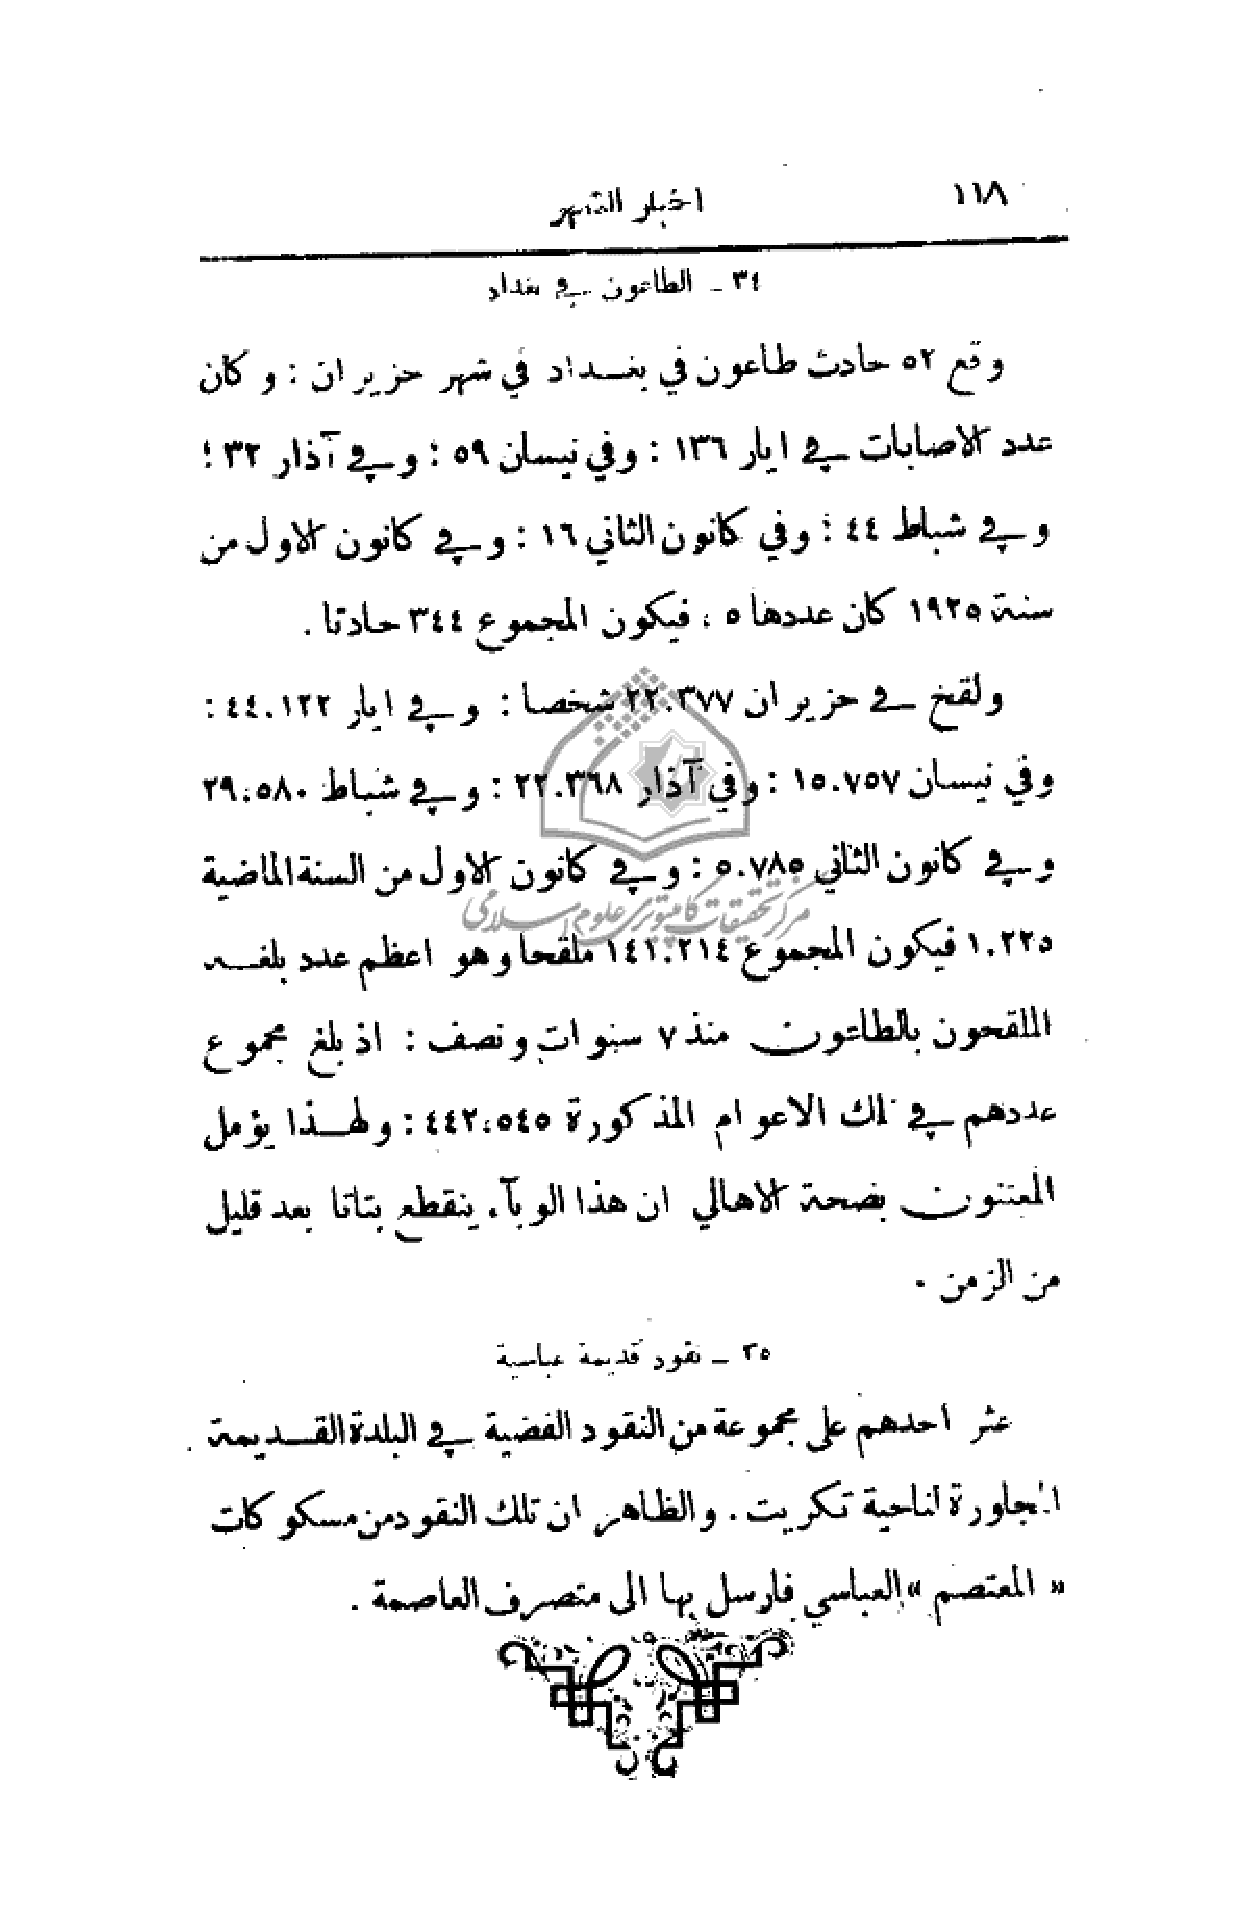 ١١٨
اخبار الشهر
٣٤ ـ الطاعون في بغداد
وقع ٥٢ حادث طاعون في بغداد في شهر حزيران : وكان
عدد الاصابات في ايار ١٣٦ : وفي نيسان ٥٩ : وفي آذار ٣٢ ؛
وفي شباط ٤٤ : وفي كانون الثاني ١٦ : وفي كانون الاول من
سنة ١٩٢٥ كان عددها ٥ ، فيكون المجموع ٣٤٤ حادثا .
ولقح في حزيران ٢٢.٣٧٧ شخصا : وفي ايار ٤٤.١٢٢ :
وفي نيسان ١٥.٧٥٧ : وفي آذار ٢٢.٣٦٨ : وفي شباط ٢٩.٥٨٠
وفي كانون الثاني ٥.٧٨٥ : وفي كانون الاول من السنة الماضية
مركز تحقيقات كامپيوتري علوم اسلامي
١.٢٢٥ فيكون المجموع ١٤١.٢١٤ ملقحا وهو اعظم عدد بلغـه
الملقحون بالطاعون منذ ٧ سنوات ونصف : اذ بلغ مجموع
عددهم في تلك الاعوام المذكورة ٤٤٢.٥٤٥ : ولهـذا يؤمل
المعتنون بصحة الاهالي ان هذا الوبآء ينقطع بتاتا بعد قليل
من الزمن .
٣٥ ـ نقود قديمة عباسية
عثر احدهم على مجموعة من النقود الفضية في البلدة القـديمة
المجاورة لناحية تكريت . والظاهر ان تلك النقود من مسكوكات
« المعتصم » العباسي فارسل بها الى متصرف العاصمة .